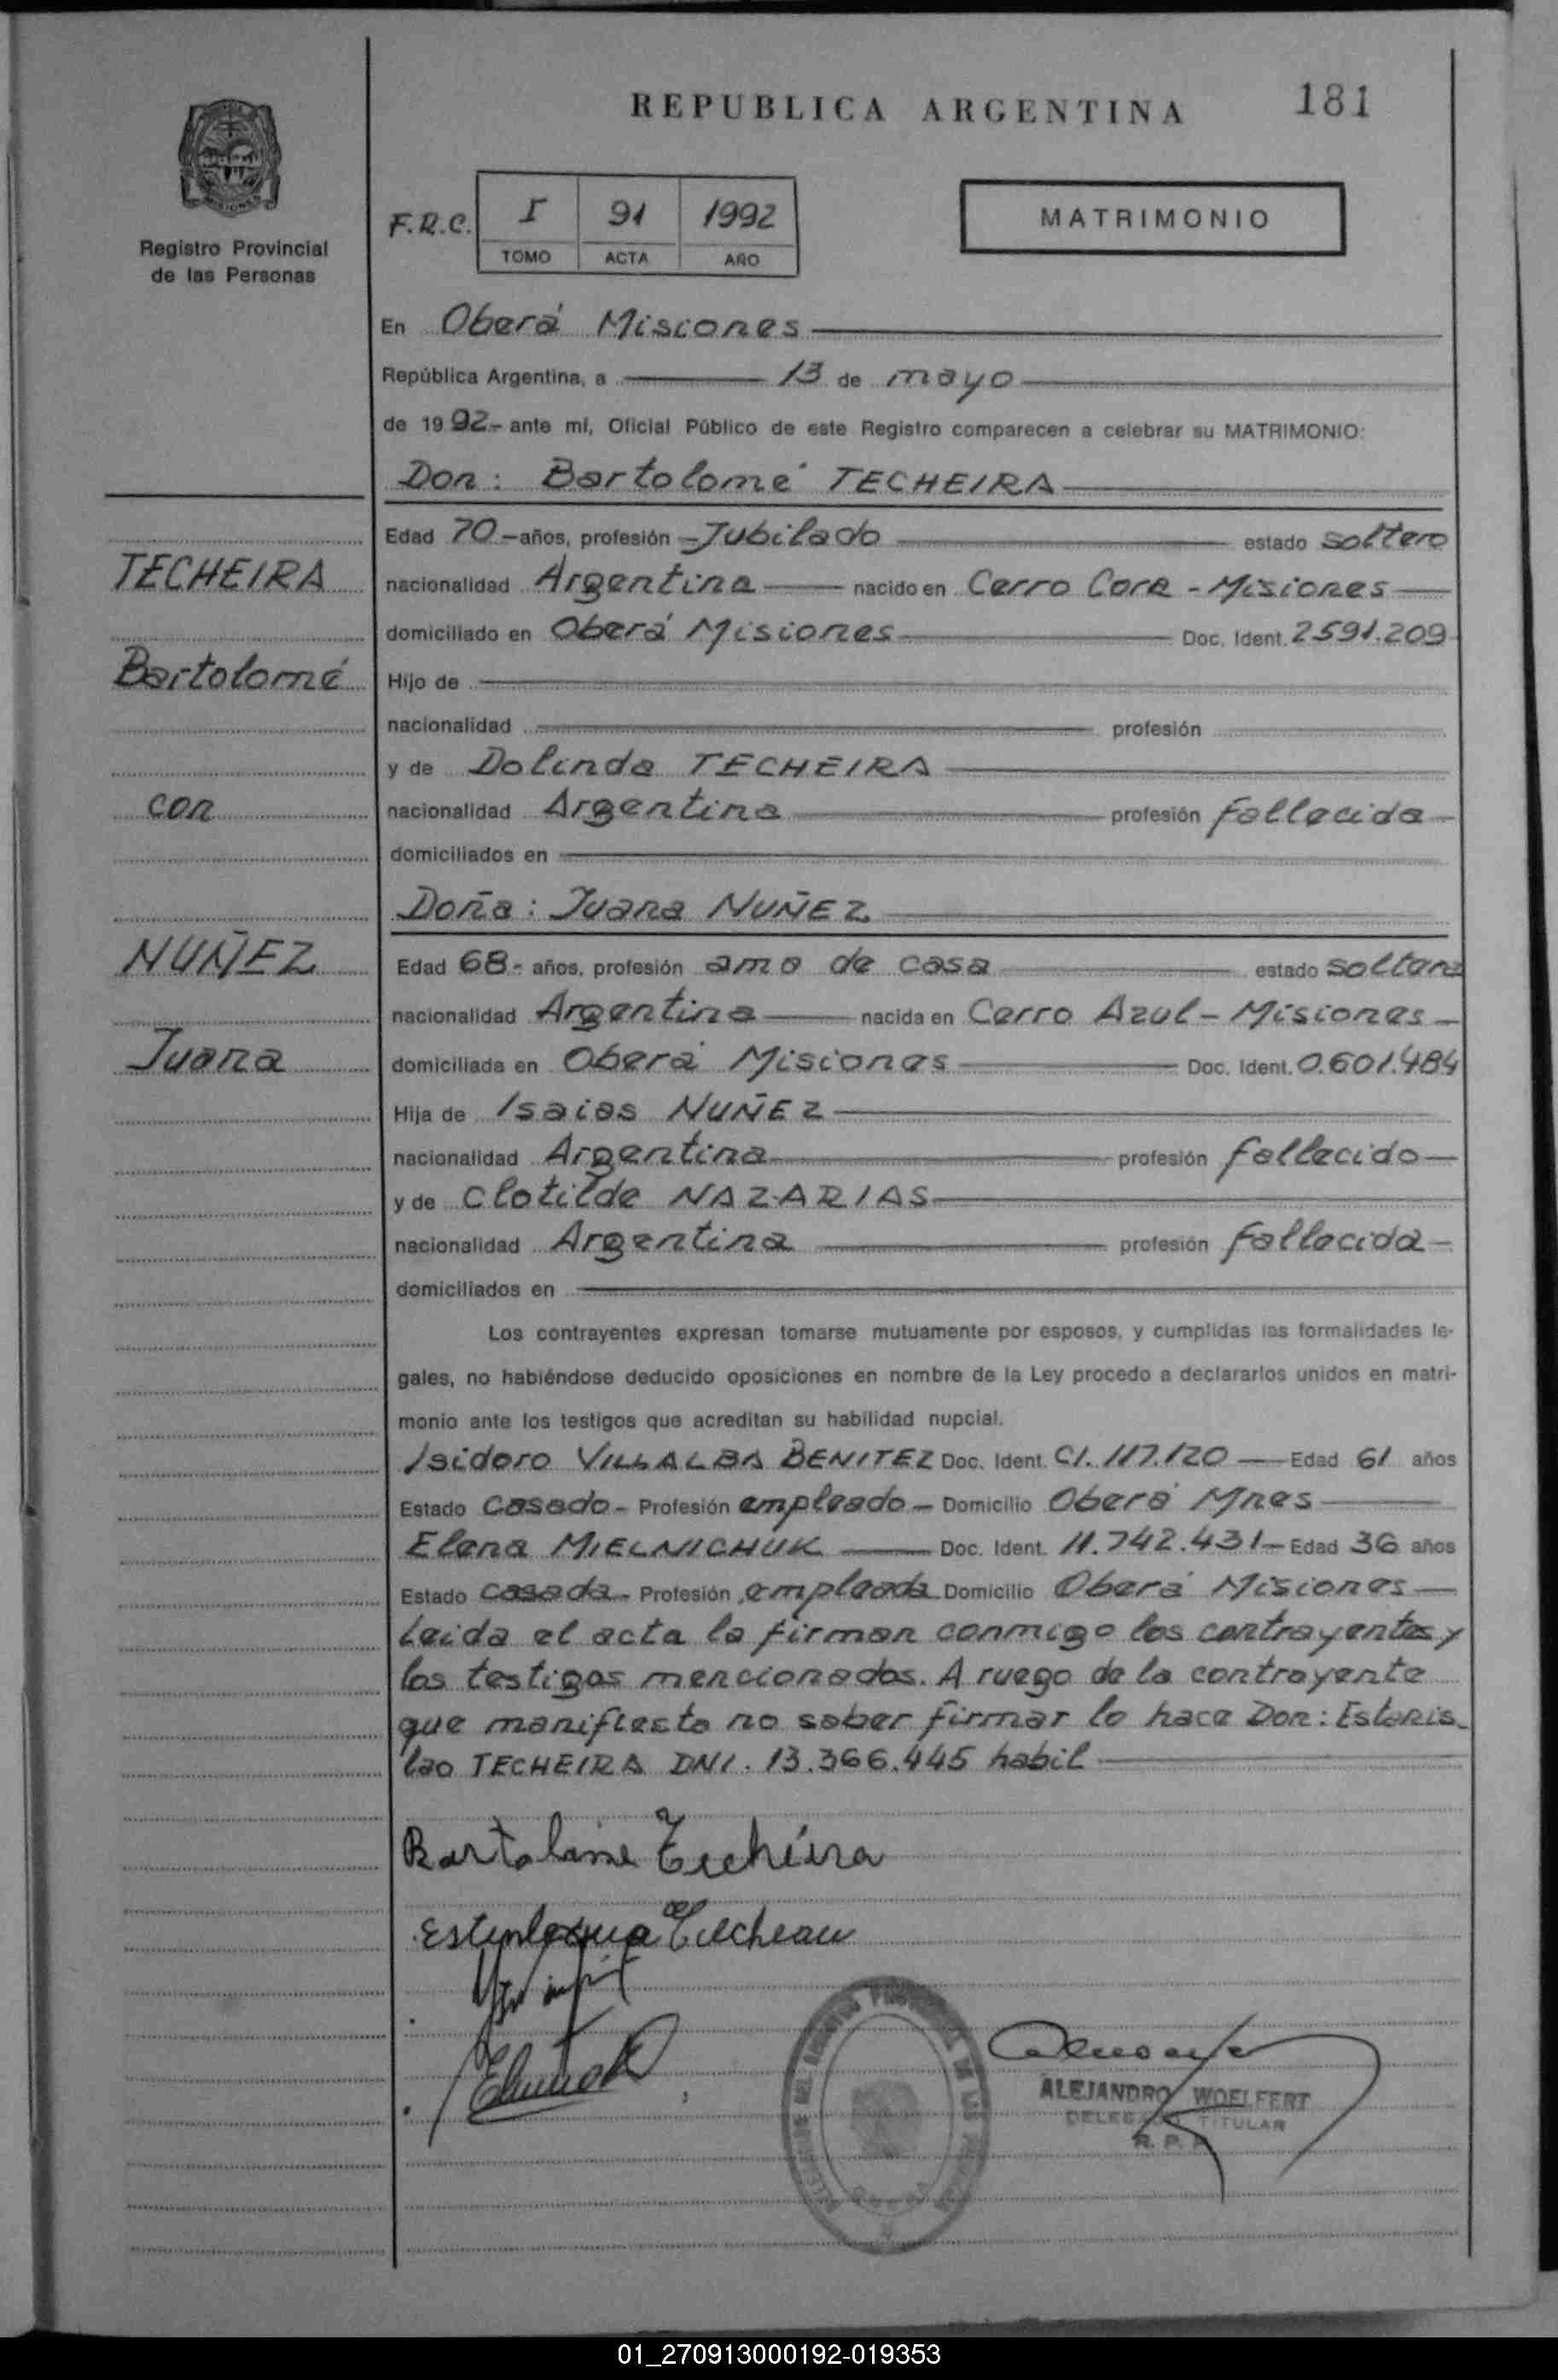 REPUBLICA ARGENTINA
181
Registro Provincial
de las Personas
F.R.C.
I 91 1992
TOMO ACTA AÑO
MATRIMONIO
En Oberá Misiones
República Argentina, a 13 de mayo
de 1992- ante mí, Oficial Público de este Registro comparecen a celebrar su MATRIMONIO:
Don: Bartolomé TECHEIRA
Edad 70-años, profesión -Jubilado estado soltero
TECHEIRA
nacionalidad Argentina nacido en Cerro Cora - Misiones
domiciliado en Oberá Misiones Doc. Ident. 2591.209
Bartolomé
Hijo de
nacionalidad profesión
y de Dolinda TECHEIRA
con
nacionalidad Argentina profesión fallecida
domiciliados en
Doña: Juana NUÑEZ
NUÑEZ
Edad 68- años, profesión ama de casa estado soltera
nacionalidad Argentina nacida en Cerro Azul - Misiones
Juana
domiciliada en Oberá Misiones Doc. Ident. 0.601.484
Hija de Isaias NUÑEZ
nacionalidad Argentina profesión fallecido
y de Clotilde NAZARIAS
nacionalidad Argentina profesión fallecida
domiciliados en
Los contrayentes expresan tomarse mutuamente por esposos, y cumplidas las formalidades le-
gales, no habiéndose deducido oposiciones en nombre de la Ley procedo a declararlos unidos en matri-
monio ante los testigos que acreditan su habilidad nupcial.
Isidoro VILLALBA BENITEZ Doc. Ident. CI. 117.120 Edad 61 años
Estado casado- Profesión empleado- Domicilio Oberá Mnes
Elena MIELNICHUK Doc. Ident. 11.742.431- Edad 36 años
Estado casada- Profesión empleada Domicilio Oberá Misiones
Leida el acta la firman conmigo los contrayentes y
los testigos mencionados. A ruego de la contrayente
que manifiesta no saber firmar lo hace Don: Estanis_
lao TECHEIRA DNI. 13.366.445 habil
Bartolome Techeira
ALEJANDRO WOELFERT
DELEGADO TITULAR
R. P. P.
01_270913000192-019353